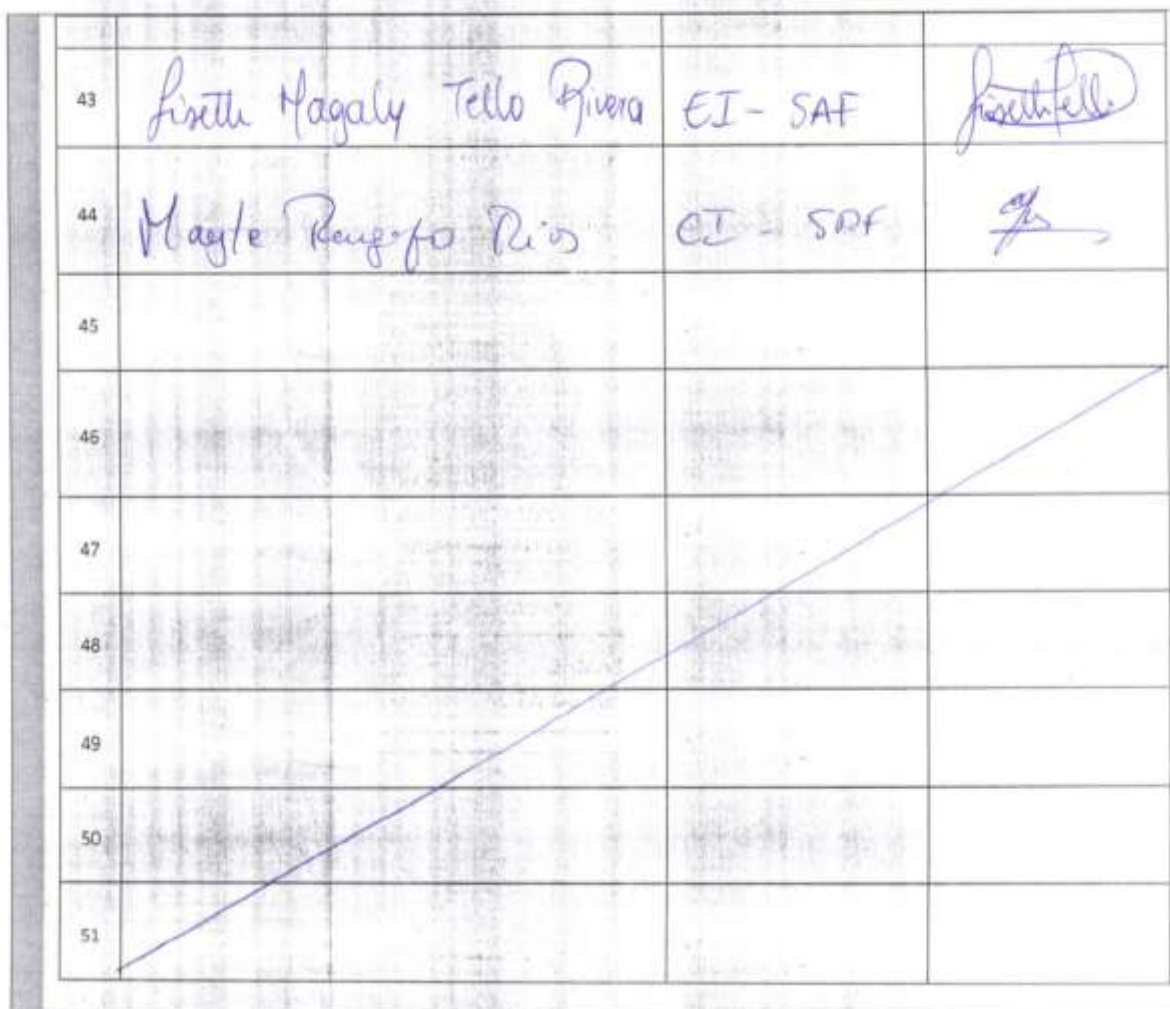 43 Lisetti Magaly Tello Rivera EI - SAF
44 Mayte Rengifo Rios EI - SAF
45
46
47
48
49
50
51